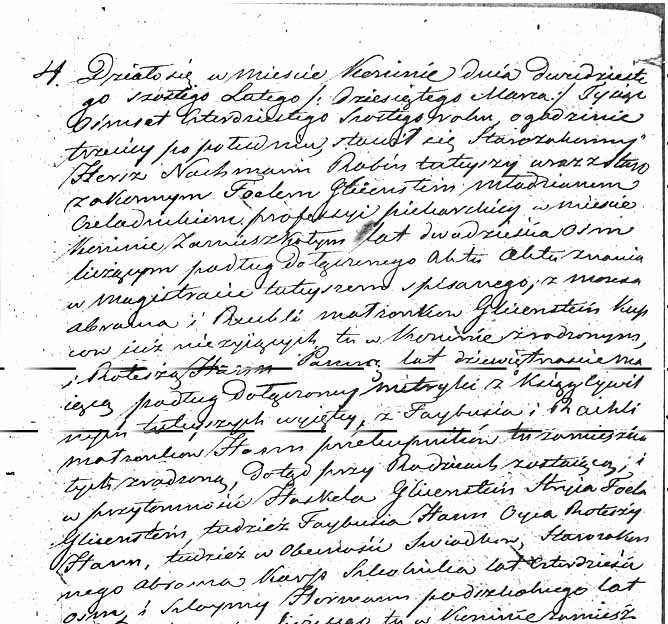 4. Działo się w mieście Koninie dnia dwudzieste
go szóstego Lutego /: dziesiątego Marca :/ Tysiąc
Ośmset Czterdziestego Szóstego roku, o godzinie
trzeciey po południu, stawił się Starozakonny
Hersz Nachmann Rabin tuteyszy wraz z Staro
zakonnym Joelem Glicenstein młodzianem
Czeladnikiem professyi piekarskiey w mieście
Koninie Zamieszkałym lat dwadzieścia ośm
liczącym podług dołączonego Aktu Aktu znania
w magistracie tuteyszem spisanego, z
Abrama i Ruchli małżonków Glicenstein Kup
ców już nieżyiących, tu w Koninie zrodzonym,
i Roteszą Hann Panną lat dziewiętnaście ma
iącą podług dołączoney metryki z Xiąg Cywil
nych tuteyszych wyiętey, z Faybusia i Rachli
małżonków Hann przekupników tu zamieszka
łych zrodzoną, dotąd przy Rodzicach zostaiącą, i
w przytomności Haskela Glicenstein Stryia Joela
Glicenstein, tudzież Faybusia Hann Oyca Roteszy
Hann, tudzież w Obecności Swiadków, Starozakon
nego Abrama Karp Szkolnika lat Czterdzieści
ośm, i Szlaymy Hermann podszkolnego lat
tu w Koninie zamiesz